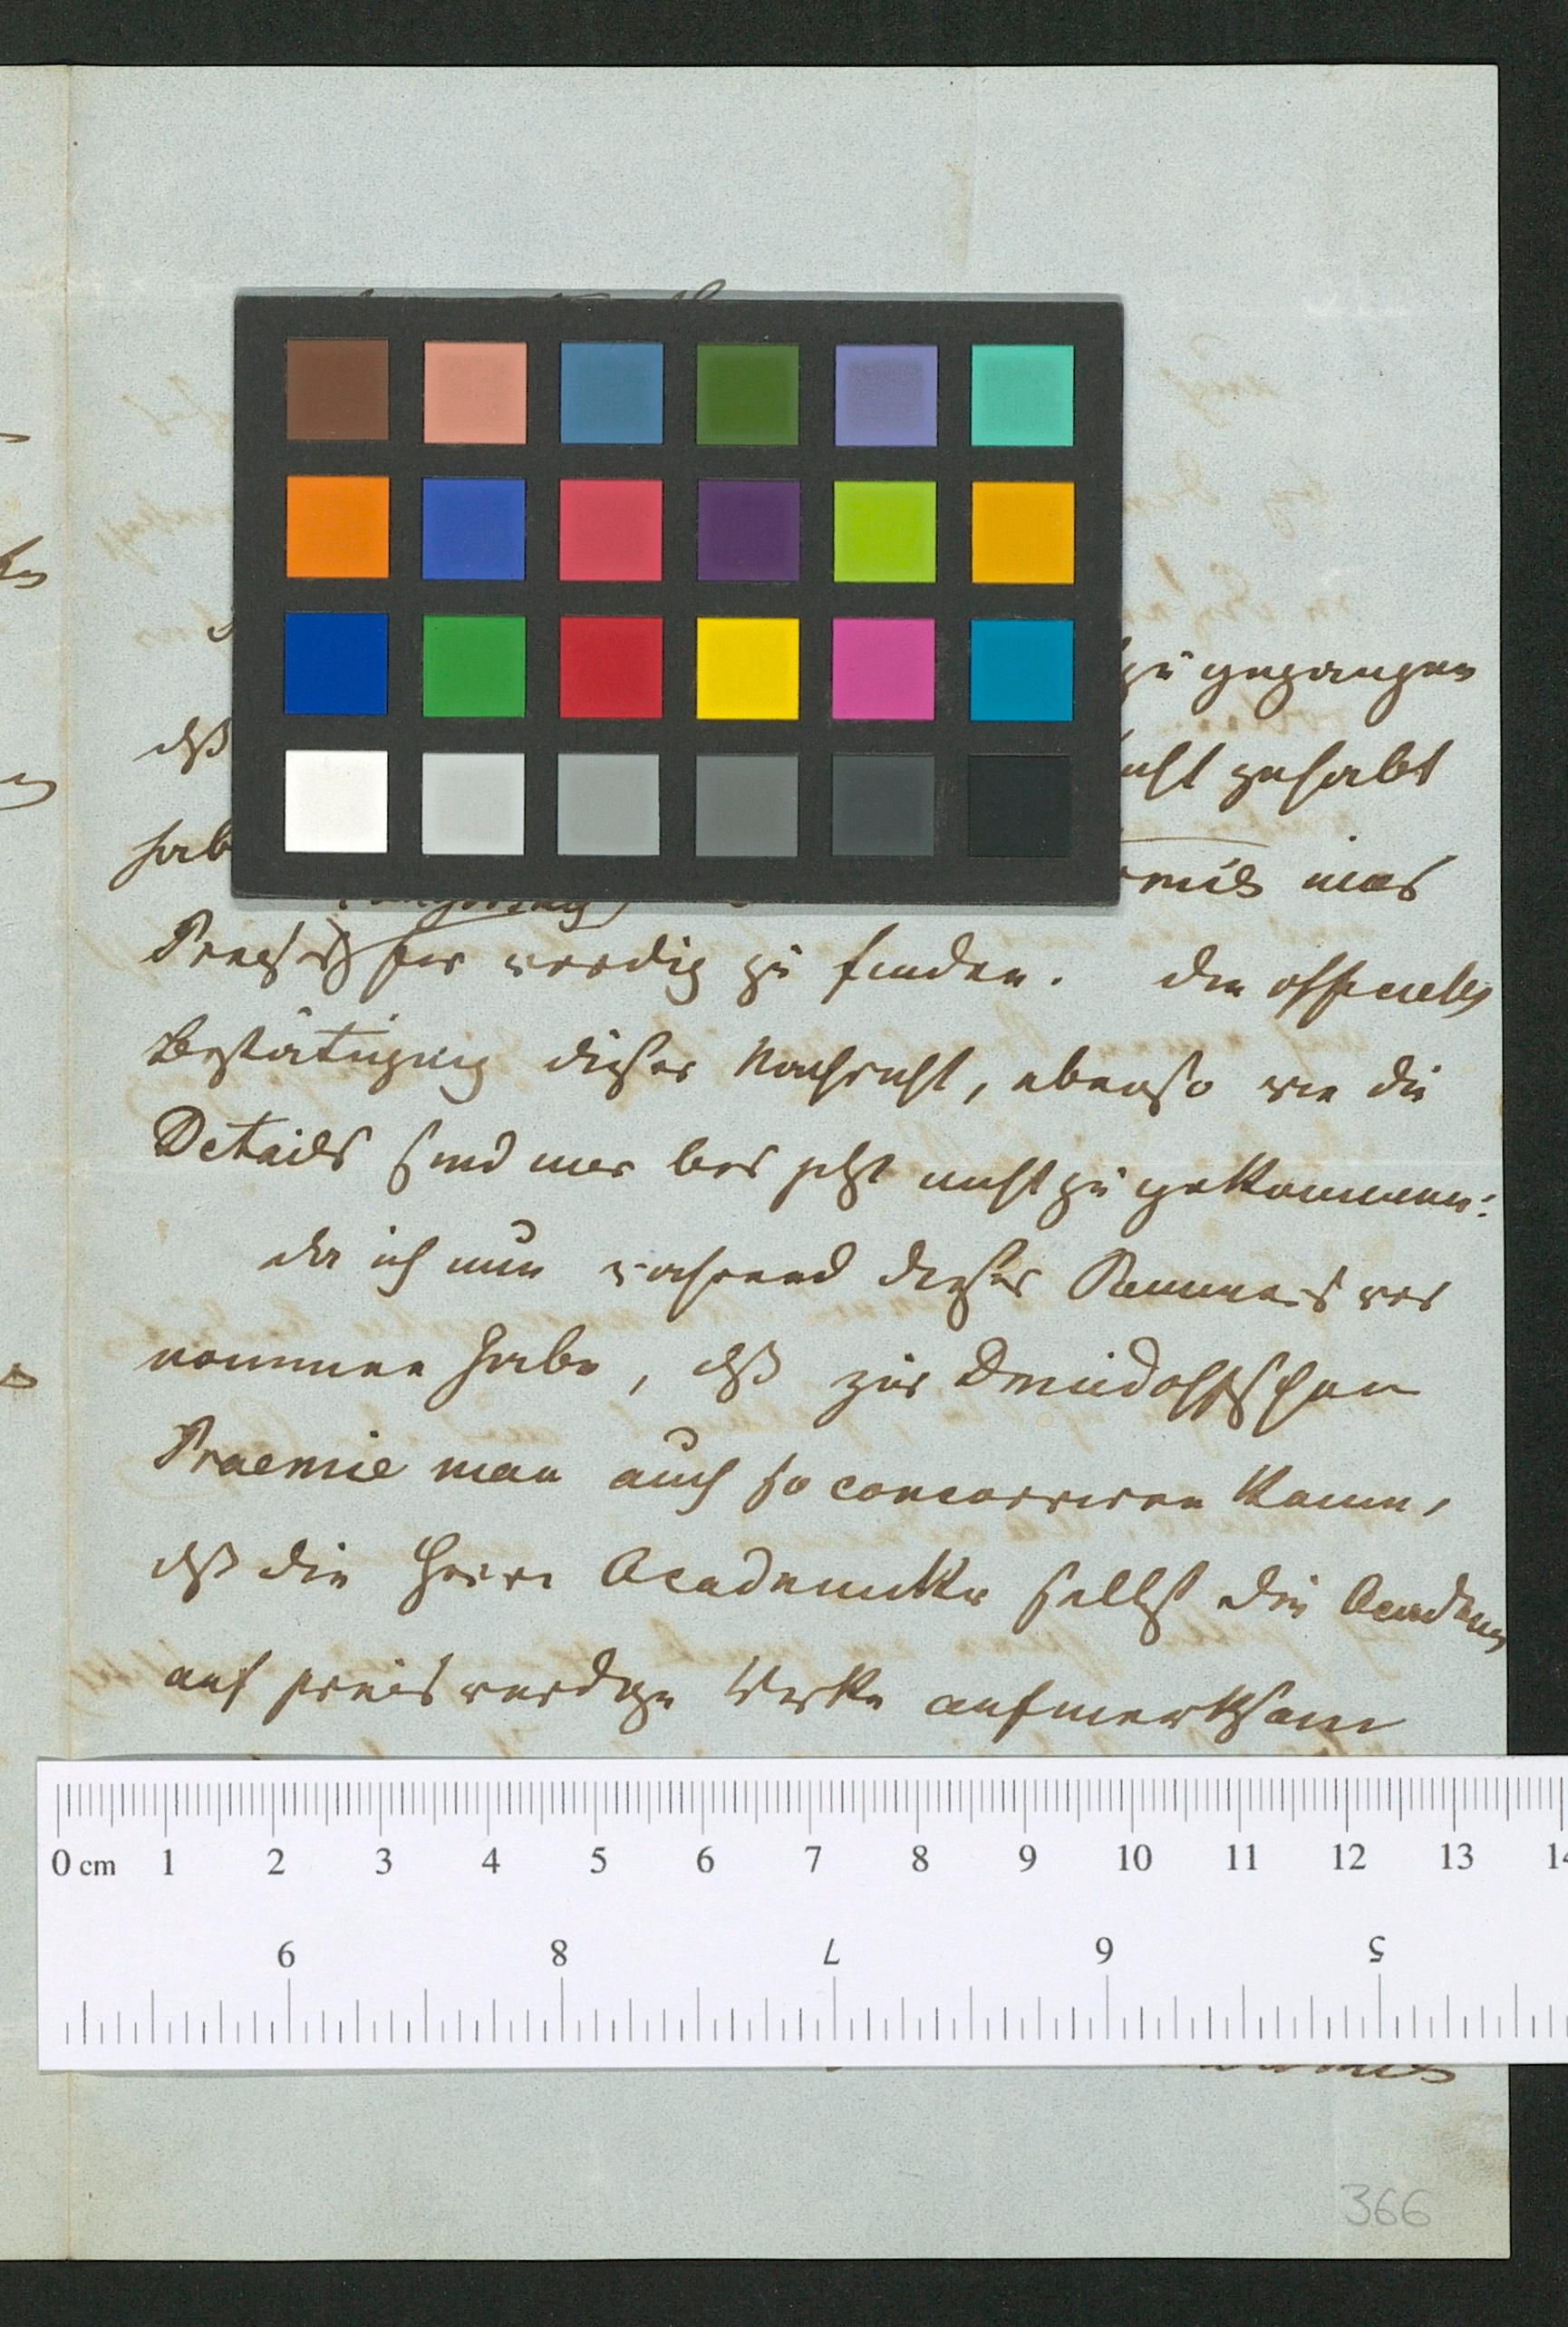 zu gegangen
dß
icht gehabt
hab
eines
Preises für wördig zu finden. Die officielle
Bestätigung dieser Nachricht, ebenso wie die
Details sind mir bis jetzt nicht zu gekommen:
da ich nun während dieses Sommers ver
nommen habe, dß zur Demidoffschen
Praemie man auch so concorriren kann,
dß die Herrn Academiker selbst die Academie
auf preiswürdige Werke aufmerksam
0 cm 1 2 3 4 5 6 7 8 9 10 11 12 13 14
9 8 7 6 5
366